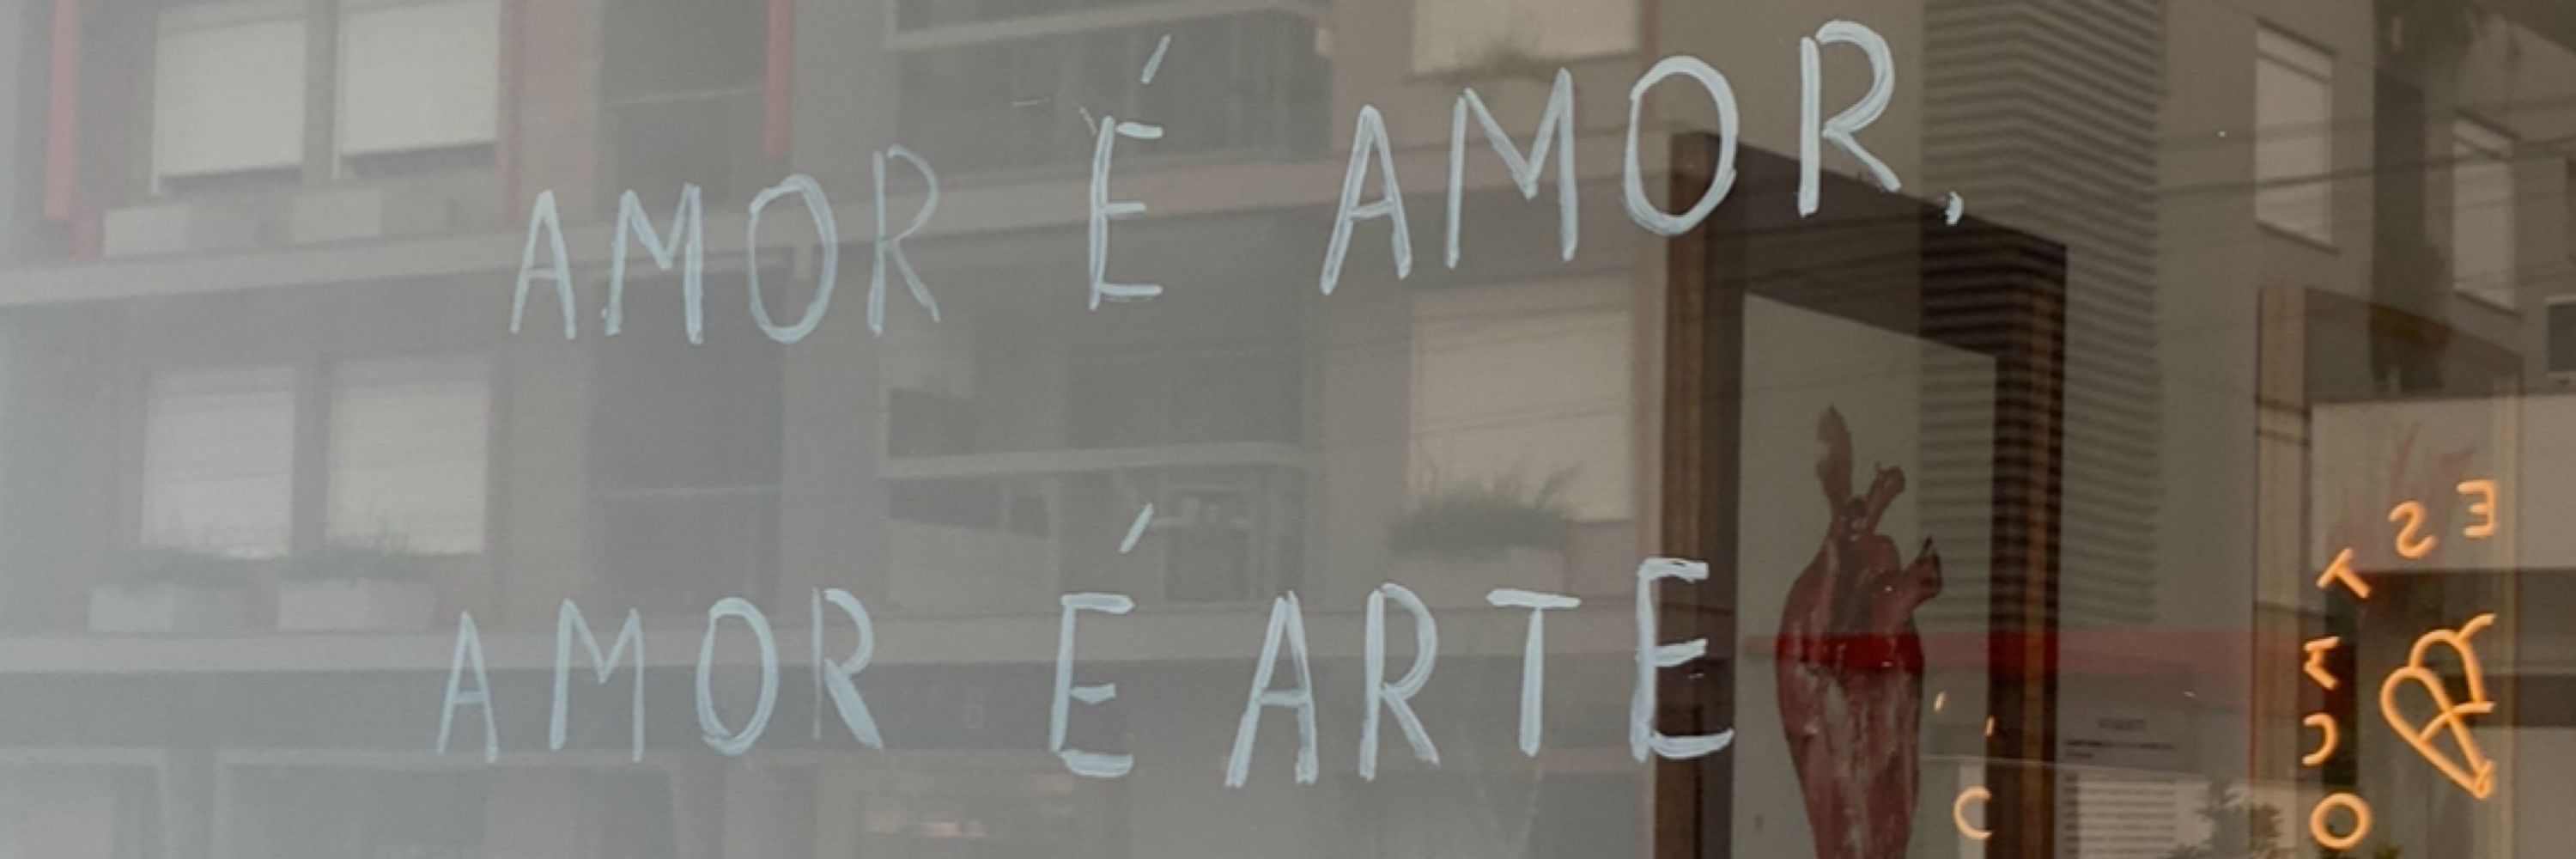 AMOR É AMOR,
AMOR É ARTE